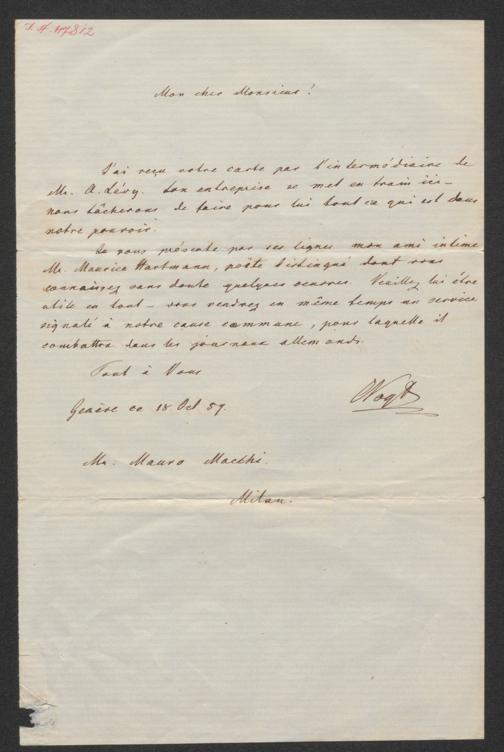 I. N. 47812
Mon cher Monsieur!
J'ai reçu votre carte par l'intermédiaire de
Mr. A. Lévy. Son entreprise se met en train ici –
nous tâcherons de faire pour lui tout ce qui est dans
notre pouvoir.
Je vous présente par ses lignes mon ami intime
M. Maurice Hartmann, poëte distingué dont vous
connaissez sans doute quelques oeuvres. Veuillez lui être
utile en tout – vous rendrez en même temps un service
signalé à notre cause commune, pour laquelle il
combattra dans les journaux allemands.
Tout à Vous
CVogt
Genève ce 18 Oct 59.
Mr. Mauro Macchi.
Milan.